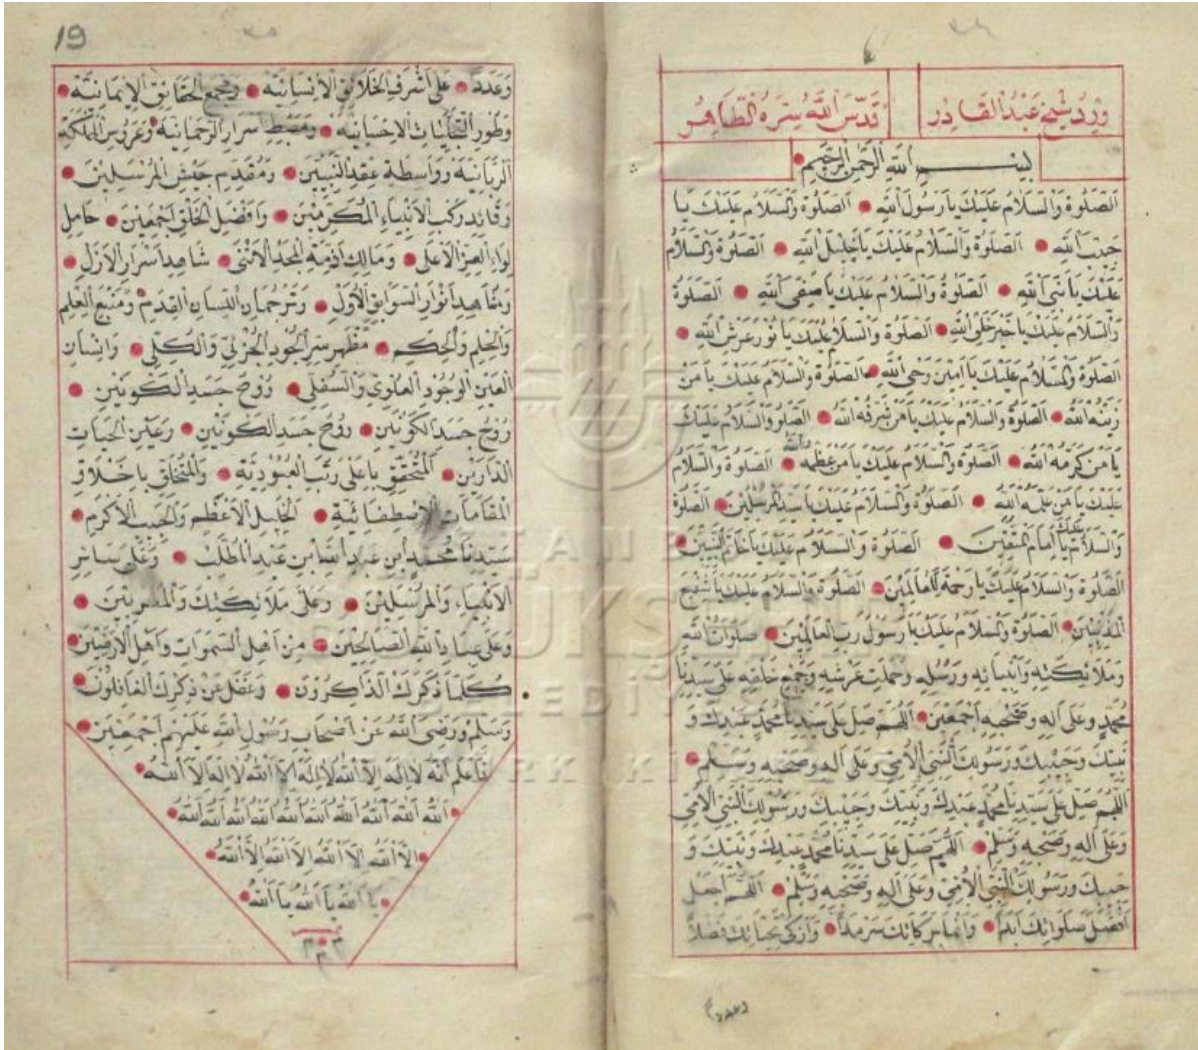 ورد شيخ عبد القادر قدس الله سره الطاهر
بسم الله الرحمن الرحيم
الصلوة والسلام عليك يا رسول الله الصلوة والسلام عليك يا
حبيب الله الصلوة والسلام عليك يا خليل الله الصلوة والسلام
عليك يا نبى الله الصلوة والسلام عليك يا صفى الله الصلوة
والسلام عليك يا خير خلق الله الصلوة والسلام عليك يا نور عرش الله
الصلوة والسلام عليك يا امين وحى الله الصلوة والسلام عليك يا من
زينه الله الصلوة والسلام عليك يا من شرفه الله الصلوة والسلام عليك
يا من كرمه الله الصلوة والسلام عليك يا من عظمه الله الصلوة والسلام
عليك يا من علمه الله الصلوة والسلام عليك يا سيد المرسلين الصلوة
والسلام عليك يا امام المتقين الصلوة والسلام عليك يا خاتم النبيين
الصلوة والسلام عليك يا رحمة للعالمين الصلوة والسلام عليك يا شفيع
المذنبين الصلوة والسلام عليك يا رسول رب العالمين صلوات الله
وملائكته وانبيائه ورسله وحملت عرشه وجميع خلقه على سيدنا
محمد وعلى اله وصحبه اجمعين اللهم صل على سيدنا محمد عبدك و
نبيك وحبيبك ورسولك النبى الامى وعلى اله وصحبه وسلم
اللهم صل على سيدنا محمد عبدك ونبيك وحبيبك ورسولك النبى الامى
وعلى اله وصحبه وسلم اللهم صل على سيدنا محمد عبدك ونبيك و
حبيبك ورسولك النبى الامى وعلى اله وصحبه وسلم اللهم اجعل
افضل صلواتك ابدا وانما بركاتك سرمدا وازكى تحياتك فضلا
وعددا
19
وعددا على اشرف الخلائق الانسانية ومجمع الحقائق الايمانية
وطور التجليات الاحسانية ومهبط اسرار الرحمانية وعروس المملكة
الربانية وواسطة عقد النبيين ومقدم جيش المرسلين
وقائد ركب الانبياء المكرمين وافضل الخلق اجمعين حامل
لواء العز الاعلى ومالك ازمة المجد الاسنى شاهد اسرار الازل
ومشاهد انوار السوابق الاول وترجمان اللسان القدم ومنبع العلم
والحلم والحكم مظهر سر الجود الجزئي والكلى وانسان
العين الوجود العلوى والسفلى روح جسد الكونين
روح جسد الكونين روح جسد الكونين وعين الحيات
الدارين المتحقق باعلى رتب العبودية والمتخلق باخلاق
المقامات الاصطفائية الخليل الاعظم والحبيب الاكرم
سيدنا محمد ابن عبد الله ابن عبد المطلب وعلى سائر
الانبياء والمرسلين وعلى ملائكتك والمقربين
وعلى عباد الله الصالحين من اهل السموات واهل الارضين
كلما ذكرك الذاكرون وغفل عن ذكرك الغافلون
وسلم ورضى الله عن اصحاب رسول الله عليهم اجمعين
فاعلم انه لا اله الا الله لا اله الا الله لا اله الا الله
الله الله الله الله الله الله الله الله الله
الا الله الا الله الا الله
يا الله يا الله يا الله